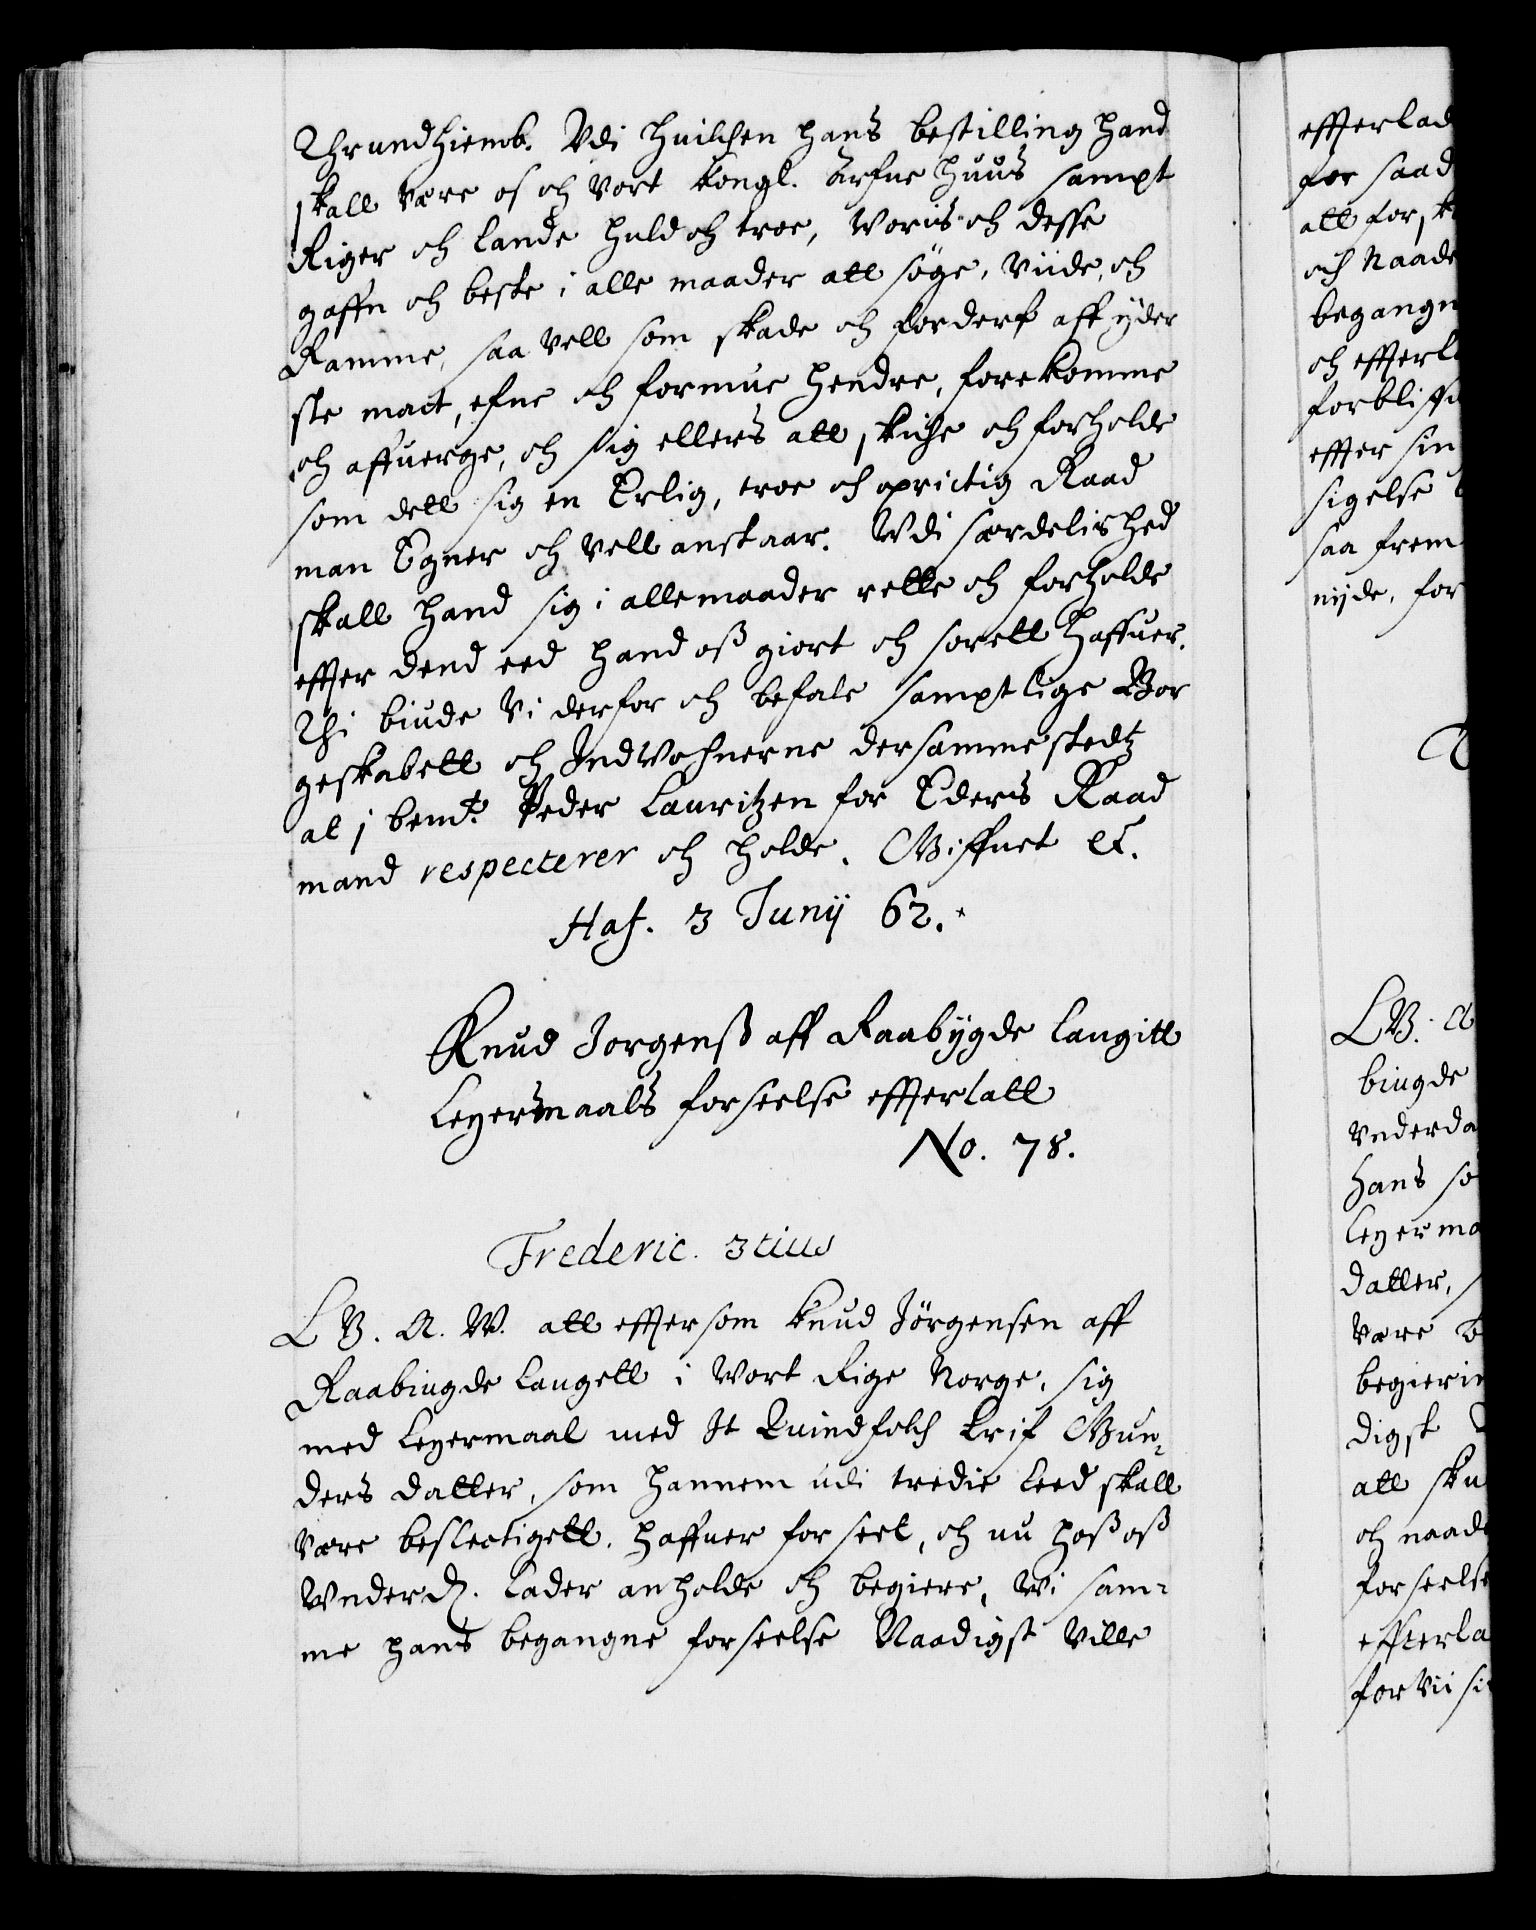 Thrundhiemb. Vdi huilchen hans bestilling hand
skall være os och vort kongl. Arfue huus sampt
Riger och Lande huld och troe, Woris och desse
gaffn och beste i alle maader att söge, viide, och
Ramme, saa vell som skade och forderf aff yder
ste mact, efne och formue hendre, forekomme
och affuerge, och sig ellers att skiche och forholde
som dett sig en Erlig, troe och oprictig Raad
man Egner och vell anstaar. Wdi særdelished
skall hand sig i alle maader rette och forholde
effter dend eed hand oß giort och sorett haffuer.
Thi biude Vi derfor och befale samptlige Bor
geskabett och Indvohnerne dersammestedtz
at i bemt. Peder Lauritzen for Eders Raad
mand respecterer och holde. Giffuet etc.
Haf. 3 Junij 62.
Knud Jorgenß aff Raabygde Laugitt
Leyersmaals forseelse effterlatt
No. 78.
Frederic. 3tius
L V. A. W. att efftersom Knud Jörgensen aff
Raabiugde Laugett i Wort Rige Norge, sig
med Leyermaal med It Quindfolch Erif Gun-
ders datter, som hannem udi tredie Leed skall
være beslectigett, haffuer forseet, och nu hoß oß
Vnderd. Lader anholde och begiere, Wi sam-
me hans begangne forseelse Naadigst ville
effterlad
for saad
att for sk
och Naade
begangn
och effterl
forbliffu
effter sin
sigelse
saa frem
nyde, for
LV. A
biugde
Vnderda
hans so
Leyerma
datter,
være b
begierin
digst
att sku
och naade
forseelse
effterla
for vii si